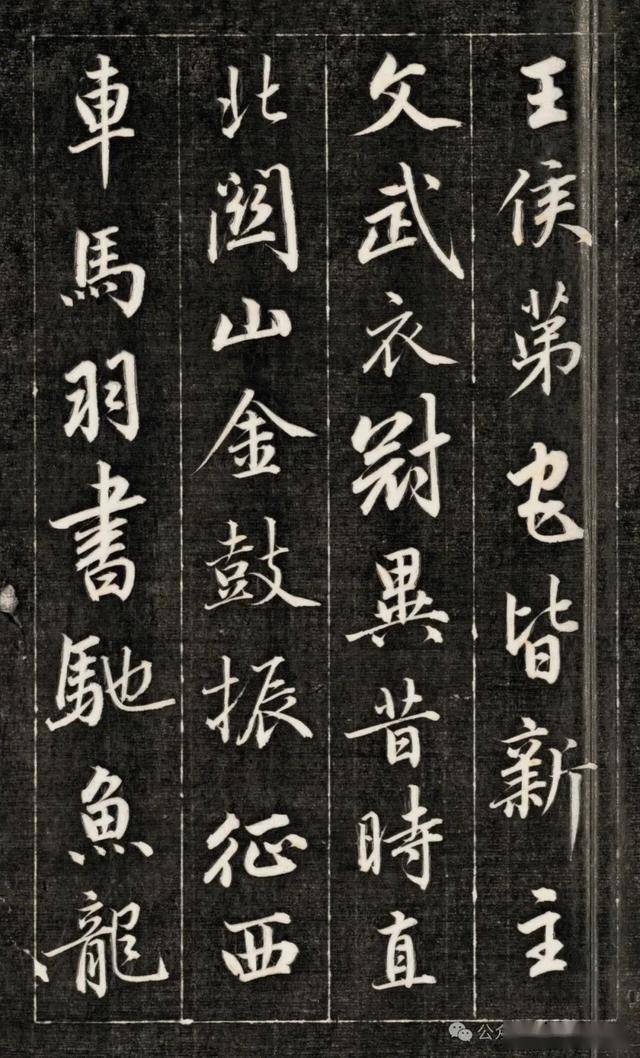 王侯第宅皆新主
文武衣冠異昔時直
北關山金鼓振征西
車馬羽書馳魚龍
公众